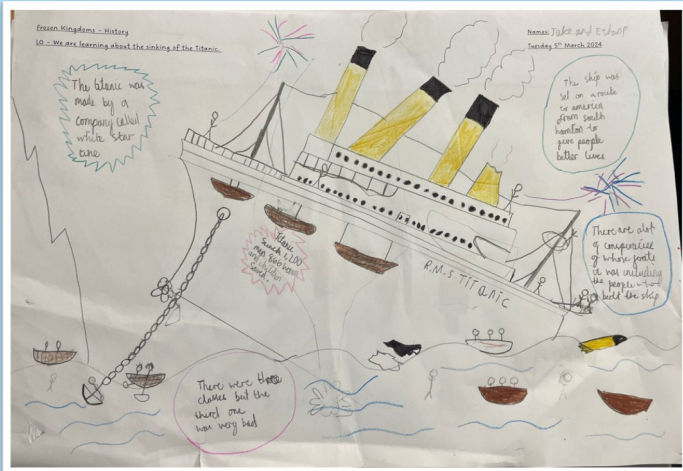 Frozen Kingdoms – History
LO – We are learning about the sinking of the Titanic
Names: Jake and
Tuesday 5th March 2024
The titanic was
made by a
company called
white star
The ship was
set on a route
to america
from south
hamton to
give people
better lives
There are alot
of conspiracies
of whose fault
it was including
the people who
built the ship
men
and children
R.M.S TITANIC
There were three
classes but the
third one
was very bad